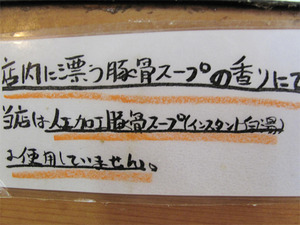 店内に漂う豚骨スープの香りにて
当店は人工加工豚骨スープ(インスタント白湯)
お使用していません。